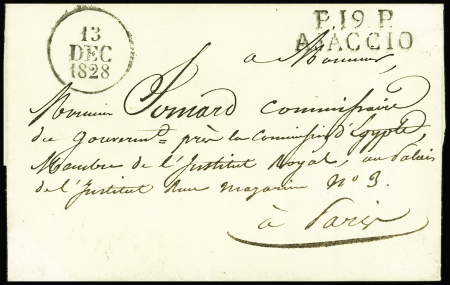 13
DEC
1828
P.19.P.
AJACCIO
a Monsieur,
Monsieur Jomard Commissaire
du Gouvernt. près la Commission d'Égypte,
Membre de l'Institut Royal, au Palais
de l'Institut Rue Mazarin N° 3.
à Paris